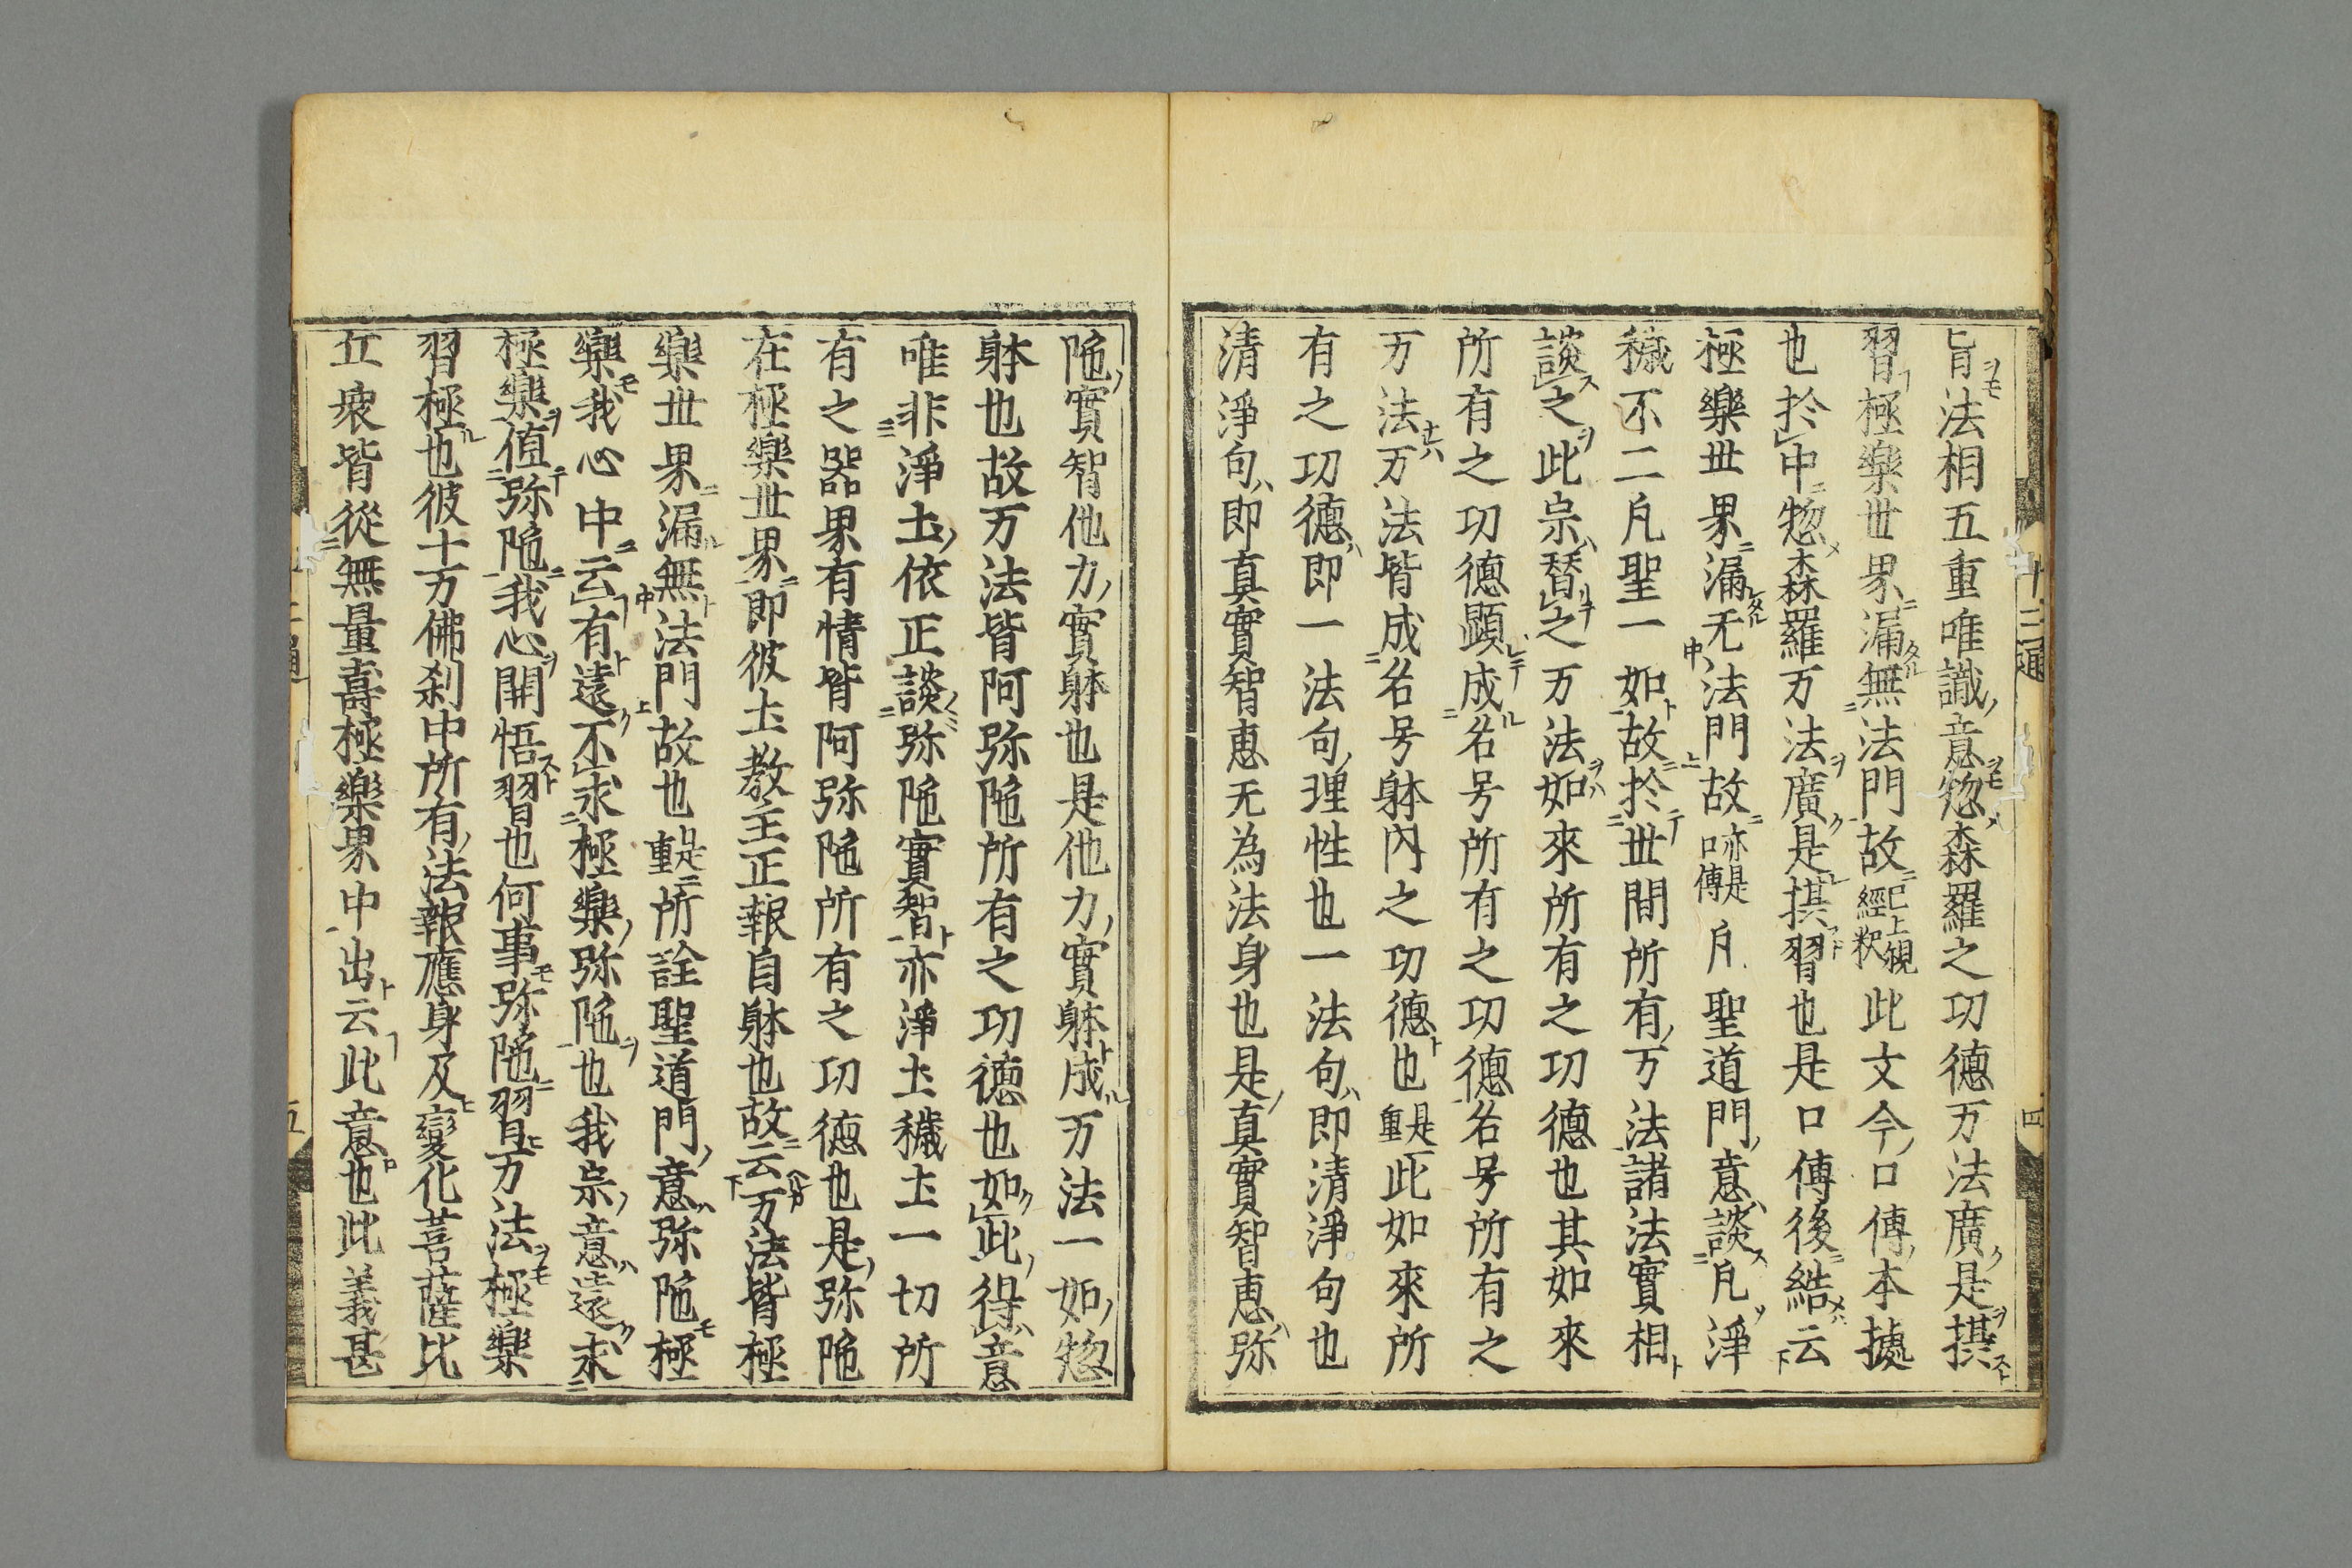 旨法相五重唯識意惣森羅之功德万法廣是摂
習極楽世界漏無法門故已上観経釈此文今口傳本㨿
也於中惣森羅万法廣是摂習也是口傳後結云
極樂世界漏无法門故亦是口傳凡聖道門意談凡浄
穢不二凡聖一如故於世間所有万法諸法實相
談之此宗替之万法如來所有之功德也其如來
所有之功德顕成名号所有之功德名号所有之
万法万法皆成名号躰内之功德也是一重此如來所
有之功德即一法句理性也一法句即清淨句也
清淨句即真實智恵无為法身也是真實智恵弥
陁實智他力實躰也是他力實躰成万法一如惣
躰也故万法皆阿弥陁所有之功德也如此得意
唯非淨土依正談弥陁實智亦淨土穢土一切所
有之器界有情皆阿弥陁所有之功德也是弥陁
在極樂世界即彼土教主正報自躰也故云万法皆極
樂世界漏無法門故也是二重所詮聖道門意弥陁極
樂我心中云有遠不求極樂弥陁也我宗意遠求
極樂値弥陁我心開悟習也何事弥陁習万法極樂
習極也彼十方佛刹中所有法報應身及變化菩薩比
丘衆皆從無量壽極樂界中出云此意也此義甚
十三通
四
五